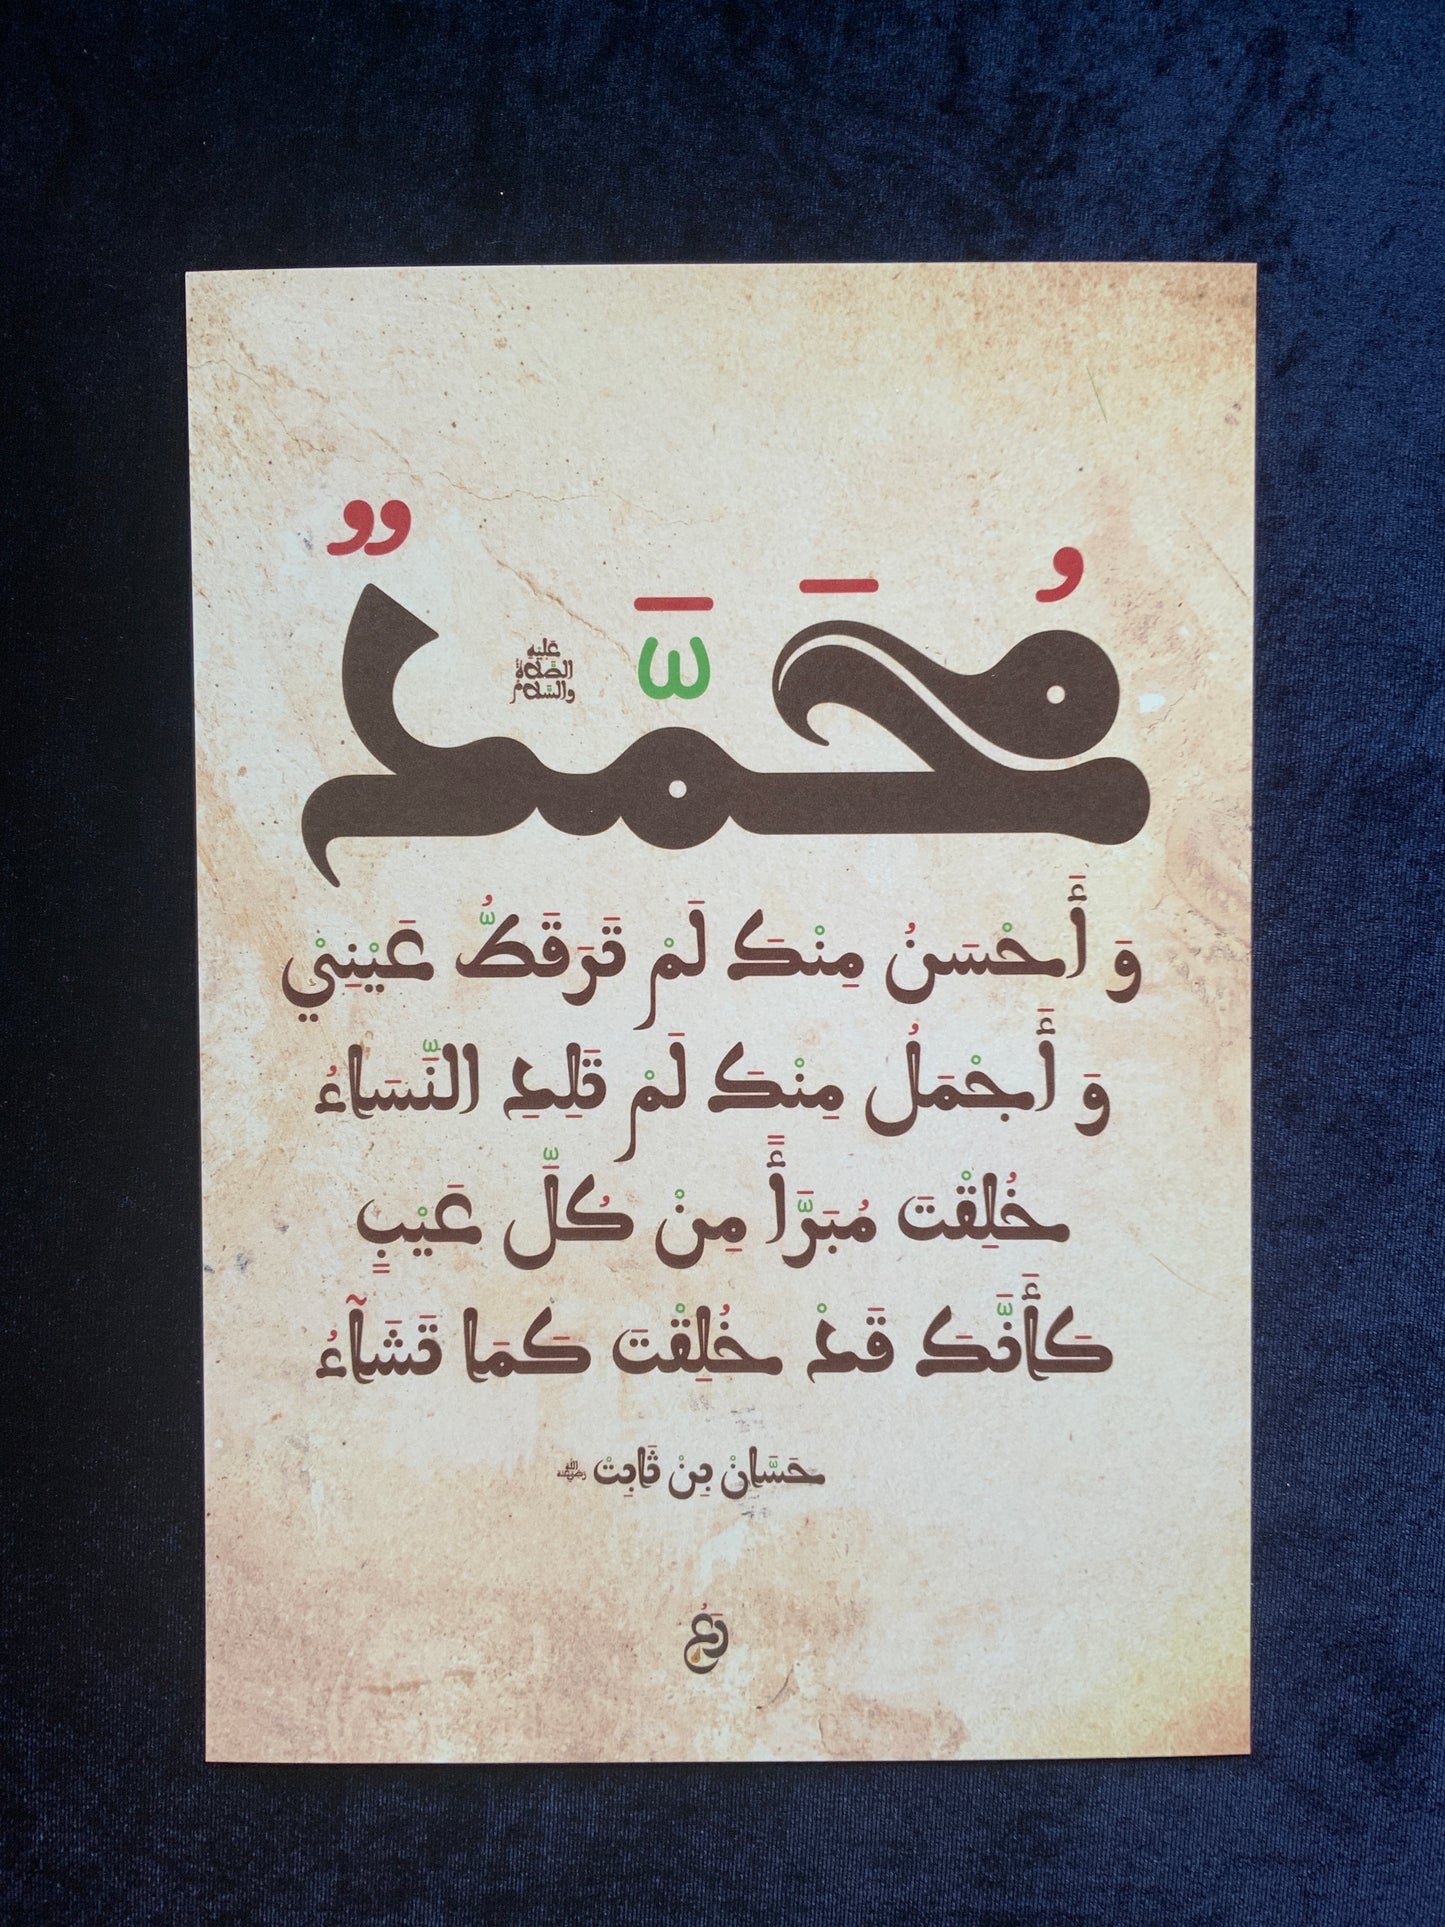 مُحَمَّدٌ
عَلَيْهِ
الصَّلَاةُ
وَالسَّلَامُ
وَ أَحْسَنُ مِنْكَ لَمْ تَرَ قَطُّ عَيْنِيْ
وَ أَجْمَلُ مِنْكَ لَمْ تَلِدِ النَّسَاءُ
خُلِقْتَ مُبَرَّأً مِنْ كُلِّ عَيْبٍ
كَأَنَّكَ قَدْ خُلِقْتَ كَمَا تَشَآءُ
حَسَّانْ بِنْ ثَابِتْ رضي الله عنه